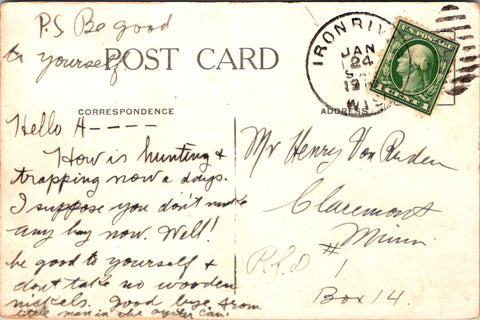 P.S Be good
to yourself
POST CARD
IRON RIV
JAN
24
WIS
U.S. POSTAGE
1 CENT 1
CORRESPONDENCE
ADDRESS
Hello A----
How is hunting &
trapping now a days.
I suppose you don't make
any hay now. Well!
be good to yourself &
dont take no wooden
nickels. Good bye from
little man in the oyster can.
Mr Henry Von Ruden
Claremont
Minn
R.F.D #1
Box 14.